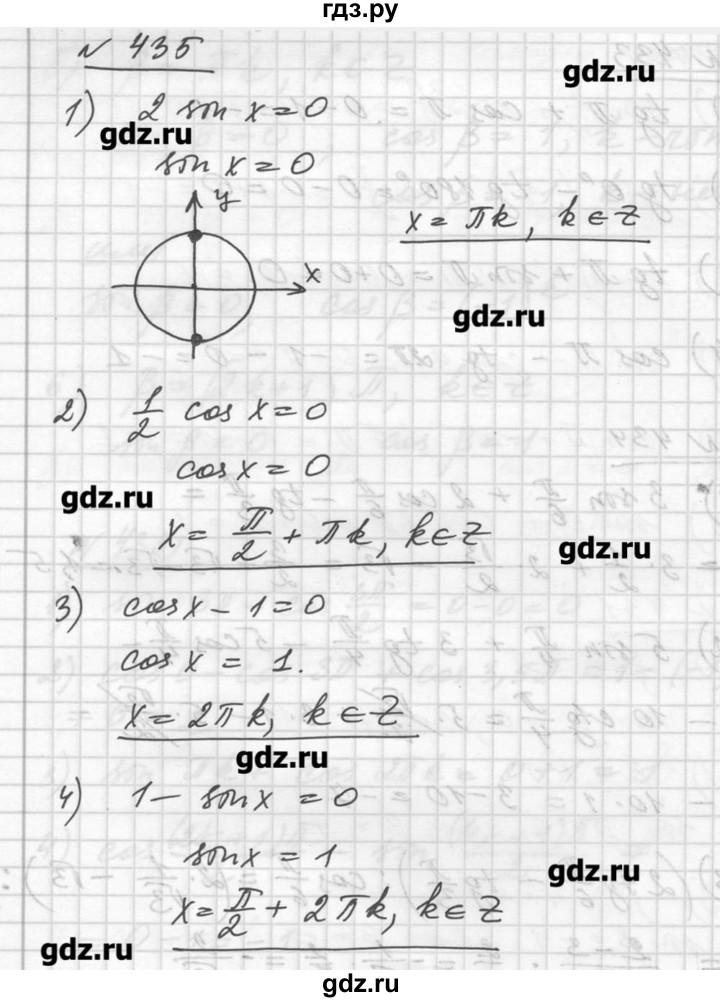 гдз.ру
№ 435
gdz.ru
1) 2 sin x = 0
gdz.ru
sin x = 0
y
x = πk, k ∈ Z
x
gdz.ru
2) 1/2 cos x = 0
cos x = 0
gdz.ru
x = π/2 + πk, k ∈ Z
gdz.ru
3) cos x - 1 = 0
cos x = 1.
x = 2πk, k ∈ Z
gdz.ru
4) 1 - sin x = 0
sin x = 1
gdz.ru
x = π/2 + 2πk, k ∈ Z
gdz.ru
gdz.ru